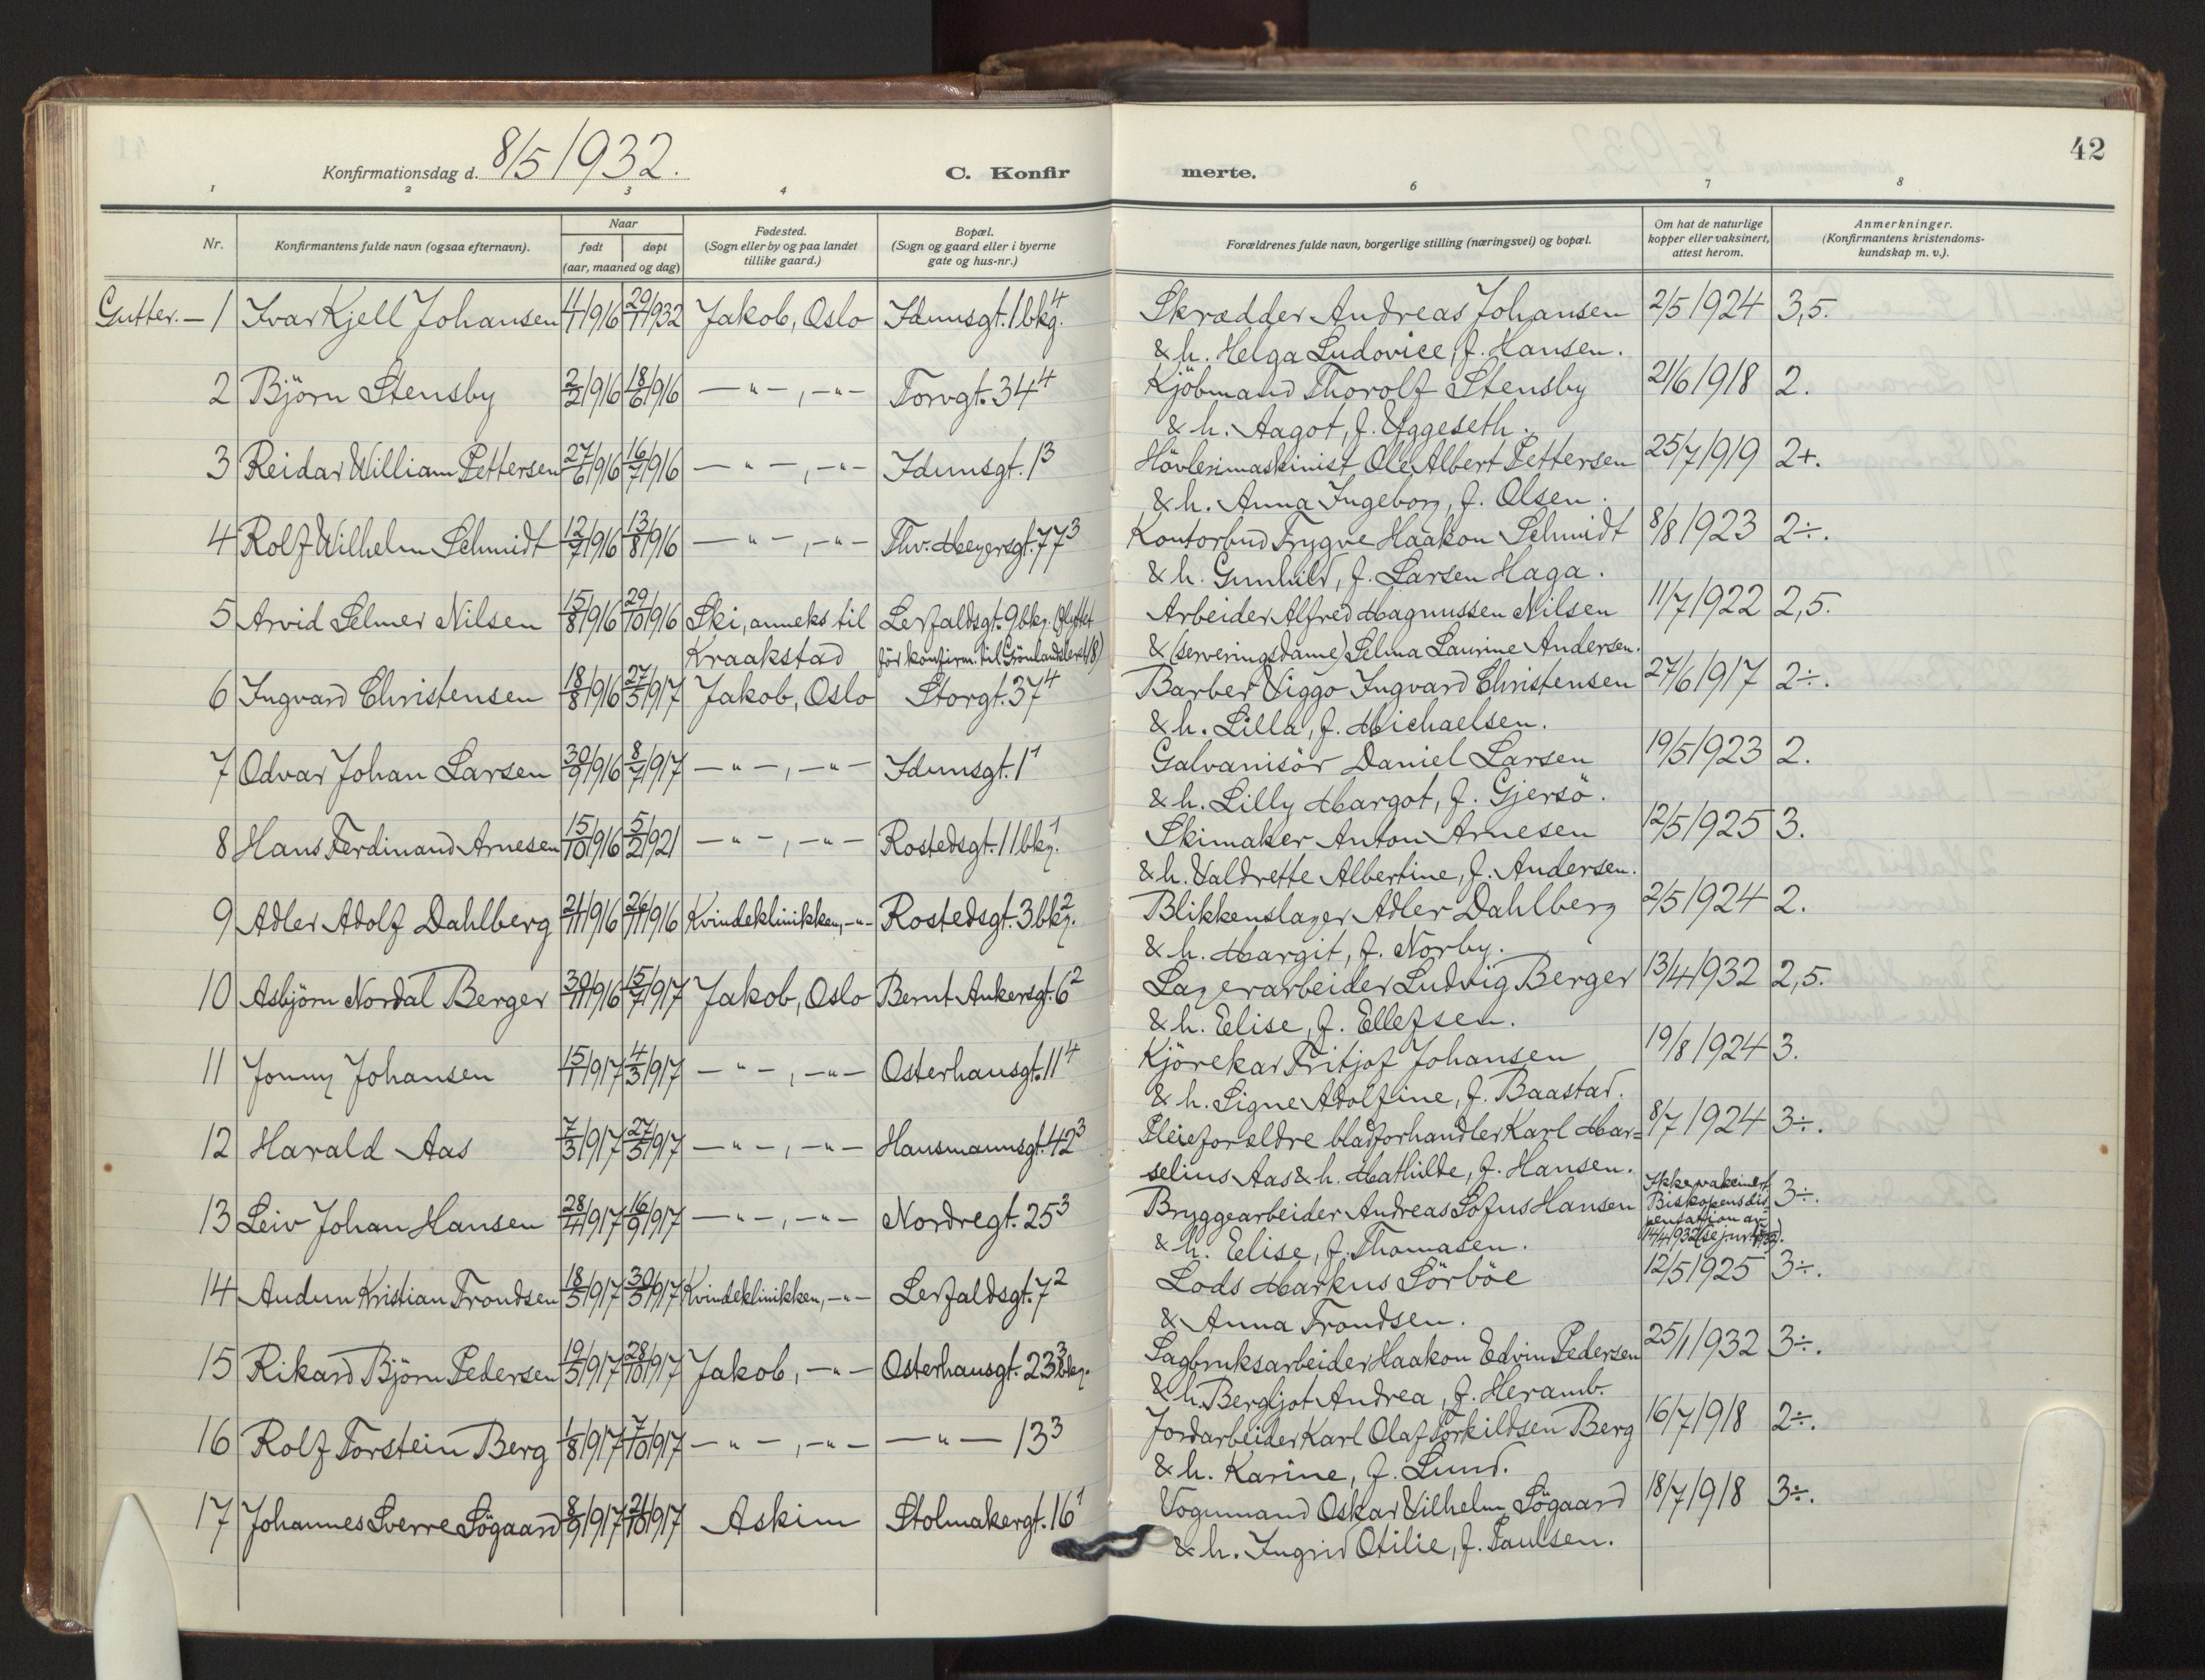 42
Konfirmationsdag d. 8/5 1932.
C. Konfirmerte.
1 2 3 4 6 7 8
Nr. | Konfirmantens fulde navn (ogsaa efternavn). | Naar født | døpt (aar, maaned og dag) | Fødested. (Sogn eller by og paa landet tillike gaard.) | Bopæl. (Sogn og gaard eller i byerne gate og hus-nr.) | Forældrenes fulde navn, borgerlige stilling (næringsvei) og bopæl. | Om hat de naturlige kopper eller vaksinert, attest herom. | Anmerkninger. (Konfirmantens kristendomskundskap m. v.).
Gutter. — 1 | Ivar Kjell Johansen | 1916 | 1932 | Jakob, Oslo | Idunsgt. 1 bkg. 4 | Skrædder Andreas Johansen | 2/5 1924 | 3,5.
& h. Helga Ludovice, f. Hansen.
2 | Björn Stensby | 2/2 1916 | 18/6 1916 | — " — , — " — | Torvgt. 34 4 | Kjöbmand Thorolf Stensby | 21/6 1918 | 2.
& h. Aagot, f. Uggeseth.
3 | Reidar William Pettersen | 27/6 1916 | 16/7 1916 | — " — , — " — | Idunsgt. 1 3 | Hövlerimaskinist Ole Albert Pettersen | 25/7 1919 | 2+.
& h. Anna Ingeborg, f. Olsen.
4 | Rolf Wilhelm Schmidt | 12/7 1916 | 13/8 1916 | — " — , — " — | Thv. Meyersgt. 77 3 | Kontorbud Trygve Haakon Schmidt | 8/8 1923 | 2÷.
& h. Gunhild, f. Larsen Haga.
5 | Arvid Selmer Nilsen | 15/8 1916 | 29/10 1916 | Ski, anneks til Kraakstad | Lerfaldsgt. 9 bkg. (flyttet för konfirm. til Grönlandsleret 18) | Arbeider Alfred Magnussen Nilsen | 11/7 1922 | 2,5.
& (serveringsdame) Selma Laurine Andersen.
6 | Ingvard Christensen | 18/8 1916 | 27/5 1917 | Jakob, Oslo | Storgt. 37 4 | Barber Viggo Ingvard Christensen | 27/6 1917 | 2÷.
& h. Lilla, f. Michaelsen.
7 | Odvar Johan Larsen | 30/9 1916 | 8/7 1917 | — " — , — " — | Idunsgt. 1 1 | Galvanisör Daniel Larsen | 19/5 1923 | 2.
& h. Lilly Margot, f. Gjersö.
8 | Hans Ferdinand Arnesen | 15/10 1916 | 5/2 1921 | — " — , — " — | Rostedsgt. 11 bkg. 1 | Skimaker Anton Arnesen | 12/5 1925 | 3.
& h. Valdrette Albertine, f. Andersen.
9 | Adler Adolf Dahlberg | 1916 | 26/11 1916 | Kvindeklinikken, — " — | Rostedsgt. 3 bkg. 2 | Blikkenslager Adler Dahlberg | 2/5 1924 | 2.
& h. Margit, f. Norby.
10 | Asbjörn Nordal Berger | 30/11 1916 | 15/7 1917 | Jakob, Oslo | Bernt Ankersgt. 6 2 | Lagerarbeider Ludvig Berger | 13/4 1932 | 2,5.
& h. Elise, f. Ellefsen.
11 | Jonny Johansen | 15/1 1917 | 4/3 1917 | — " — , — " — | Osterhausgt. 11 4 | Kjörekar Fritjof Johansen | 19/8 1924 | 3.
& h. Signe Adolfine, f. Baastad.
12 | Harald Aas | 7/3 1917 | 27/5 1917 | — " — , — " — | Hausmannsgt. 42 3 | Pleieforældre bladforhandler Karl Mar=
selius Aas & h. Mathilde, f. Hansen. | 8/7 1924 | 3÷.
13 | Leiv Johan Hansen | 28/4 1917 | 16/9 1917 | — " — , — " — | Nordregt. 25 3 | Bryggearbeider Andreas Sofus Hansen | Ikke vaksinert. Biskopens dispensation av 14/4 1932 | 3÷.
& h. Elise, f. Thomasen.
14 | Audun Kristian Trondsen | 18/5 1917 | 30/5 1917 | Kvindeklinikken, — " — | Lerfaldsgt. 7 2 | Lods Markus Sörböe | 12/5 1925 | 3÷.
& Anna Trondsen.
15 | Rikard Björn Pedersen | 19/5 1917 | 28/10 1917 | Jakob, — " — | Osterhausgt. 23 bkg. 3 | Sagbruksarbeider Haakon Edvin Pedersen | 25/1 1932 | 3÷.
& h. Bergljot Andrea, f. Heramb.
16 | Rolf Torstein Berg | 1/8 1917 | 7/10 1917 | — " — , — " — | — " — 13 3 | Jordarbeider Karl Olaf Torkildsen Berg | 16/7 1918 | 2÷.
& h. Karine, f. Lund.
17 | Johannes Sverre Sögaard | 8/9 1917 | 21/10 1917 | Askim | Stolmakergt. 16 1 | Vognmand Oskar Vilhelm Sögaard | 18/7 1918 | 3÷.
& h. Ingrid Otilie, f. Paulsen.